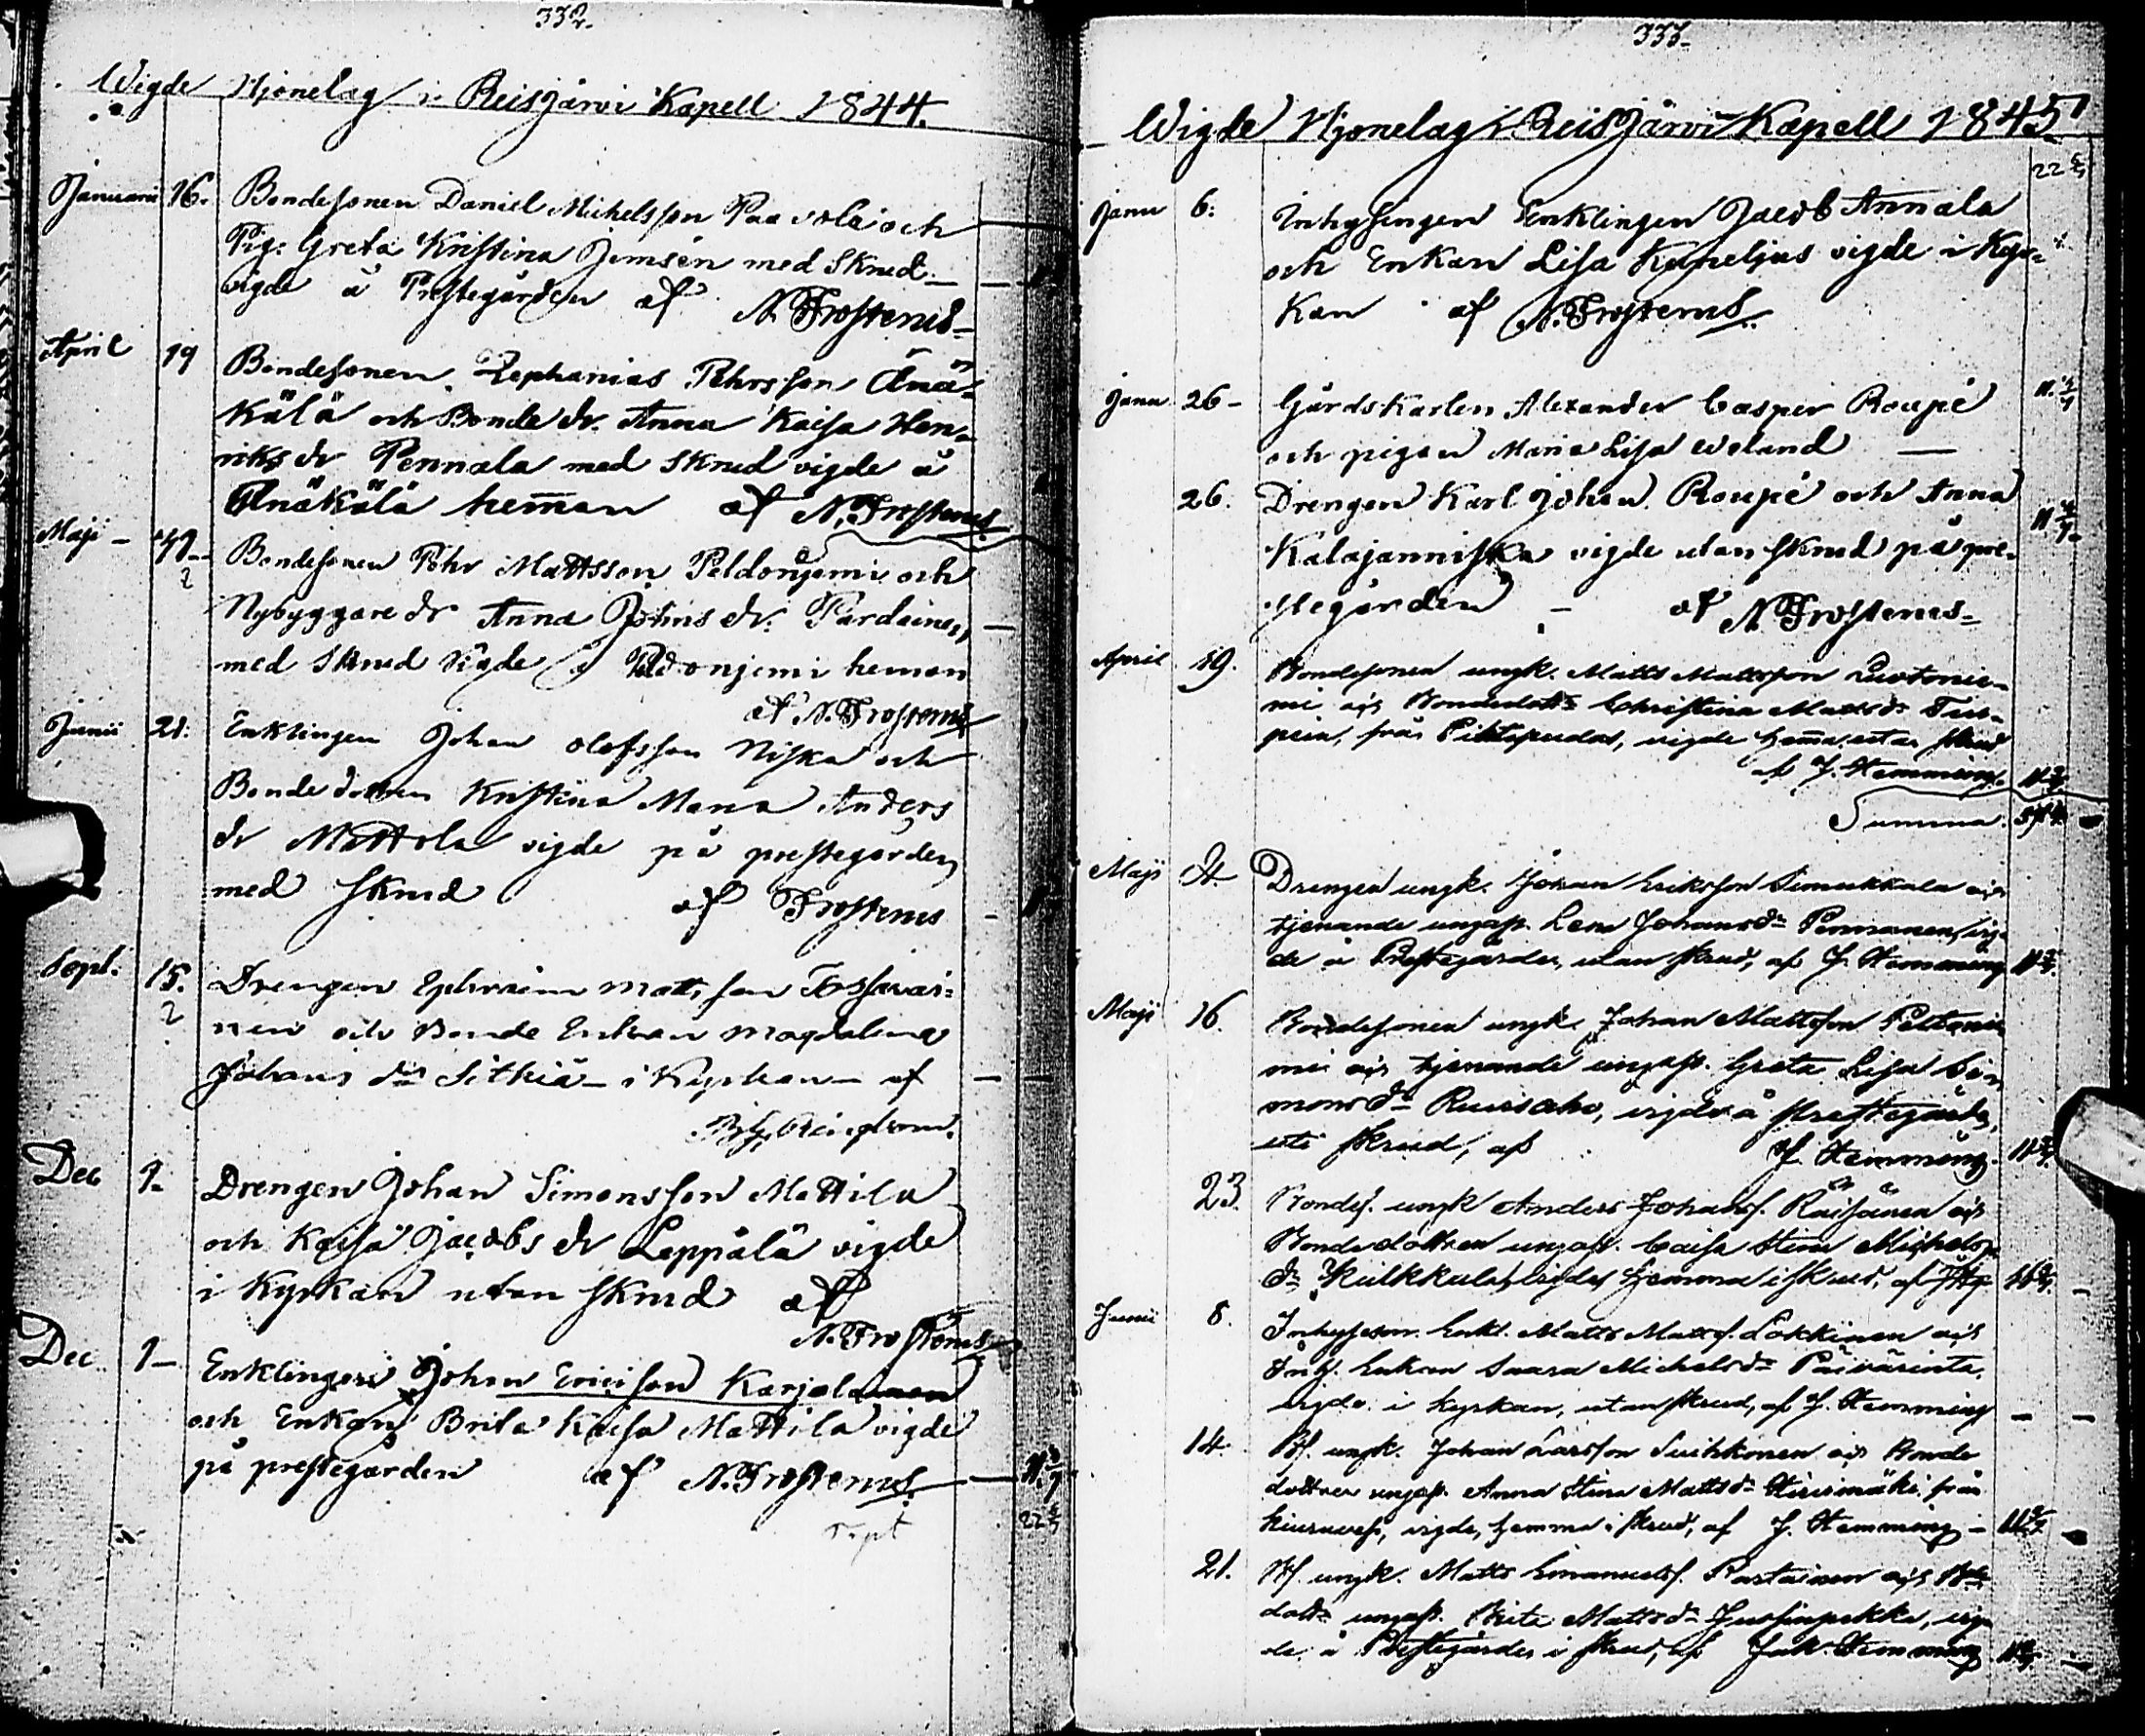 332.
Wigde Hjonelag i Reisjärvi Kapell 1844.
Januarii 16. Bondesonen Daniel Michelsson Paavola och
Pig: Greta Kristina Jemsén med Skrud
vigde å Prestegården af N. Frosterus
April 19 Bondesonen Zephanias Pehrsson Änä-
kälä och Bonde dr. Anna Kaisa Hen-
riks dr Pennala med skrud vigde å
Änäkälä heman af N. Frosterus
Maji Bondesonen Pehr Mattsson Peldonjemi och
Nybyggare dr Anna Johns dr. Pardainen
med Skrud vigde å Peldonjemi heman
af N. Frosterus
Junii 21. Enklingen Johan Olofsson Niska och
Bonde dottren Kristina Maria Anders
dr Mattola vigde på prestegården
med skrud af Frosterus
Sept. 15. Drengen Ephraim Matts son Tossavai-
nen och Bonde Enkan Magdalena
Johans dr Sitkiä i Kyrkan af
Dec 1. Drengen Johan Simonsson Mattila
och Kaisa Jacobs dr Leppälä vigde
i Kyrkan utan skrud af
N. Frosterus
Dec 1 Enklingen Johan Ericsson Karjalainen
och Enkan Brita Kaisa Mattila vigde
på prestegården af N. Frosterus
333.
Wigde Hjonelag i Reisjärvi Kapell 1845
Janu 6. Inhysingen Enklingen Jacob Annala
och Enkan Lisa Kumeljus vigde i Kyr-
kan af N. Frosterus
Janu 26 Gårdskarlen Alexander Casper Roupé
och pigan Maria Lisa Weland
26. Drengen Karl Johan Roupé och Anna
Kalajanniska vigde utan skrud på pre-
stegården af N. Frosterus
April 19. Bondesonen ungk. Matts Mattsson Luotonie-
mi och Bondedottr Christina Mattsdr Tur-
pein, från Pihtipudas, vigde hemma utan skrud
af J. Hemming.
Summa.
Maji Drengen ungk. Johan Eriksson Simukkala och
tjenande ungap. Lena Johansdr Pennanen, vig-
de å Prestegården, utan skrud, af J. Hemming
Maji 16. Bondesonen ungk. Johan Mattsson Peltonie
mi och tjenande ungap. Greta Lisa Si-
monsdr Ruuskoho, vigde å Prestegården,
uti skrud, af J. Hemming.
23. Bondes. ungk Anders Johanss. Räisänen och
Bondedottren ungap. Caisa Stina Michels-
dr Kulkkula, vigde hemma i skrud, af
Junii 8. Inhyseson. Enkl. Matts Matts. Lokkinen och
Inh. Enkan Saara Michelsdr Päivärinta,
vigde i kyrkan, utan skrud, af J. Hemming
14. Bs. ungk. Johan Larsson Suihkonen och Bonde
dottren ungap. Anna Stina Mattsdr Hirsimäki, från
Kiuruvesi, vigde, hemma i skrud, af J. Hemming
21. Bs. ungk. Matts Emanuels. Partainen och
dottr ungap. Brita Mattsdr Jussinpekka, vig
de å Prestegården i skrud, af Jak. Hemming